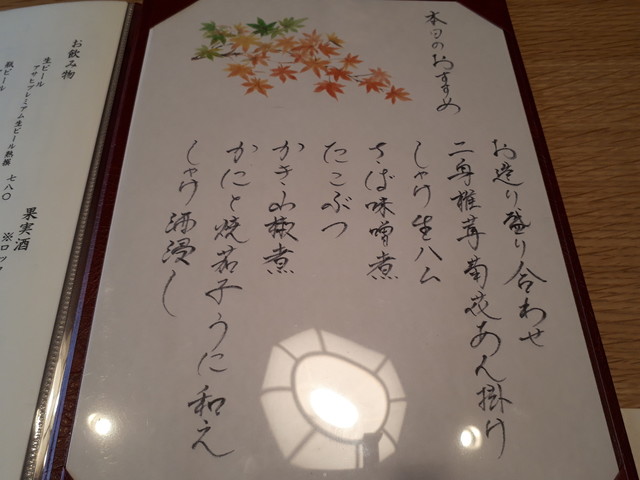 本日のおすすめ
お造り盛り合わせ
二身椎茸菊花あん掛け
しゃけ生ハム
さば味噌煮
たこぶつ
かき山椒煮
かにと焼茄子うに和え
しゃけ酒浸し
お飲み物
生ビール
アサヒプレミアム生ビール熟撰 七八〇
瓶ビール
果実酒
※ロック